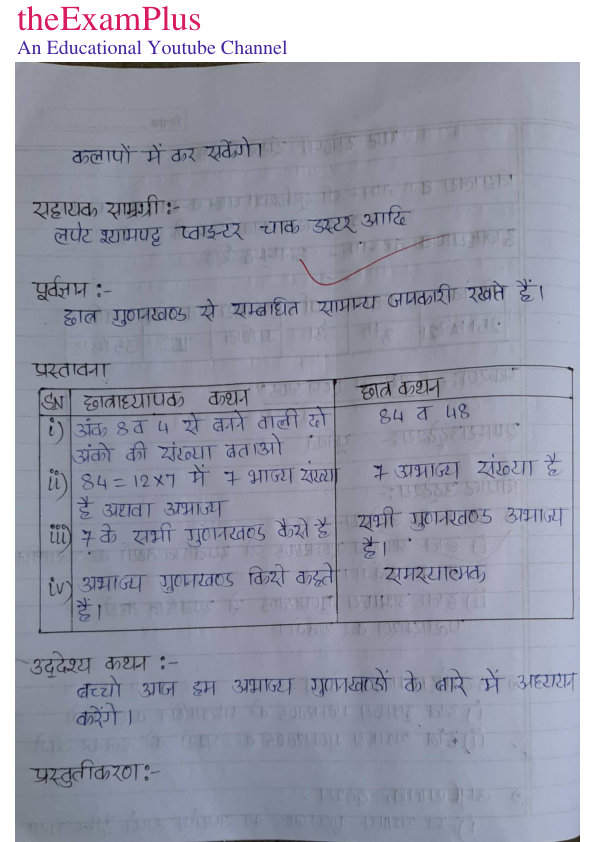 theExamPlus
An Educational Youtube Channel
कलापों में कर सकेंगे।
सहायक सामग्री:-
लपेट श्यामपट्ट प्वाइंटर चाक डस्टर आदि
पूर्वज्ञान :-
छात्र गुणनखण्ड से सम्बंधित सामान्य जानकारी रखते हैं।
प्रस्तावना
SN छात्राध्यापक कथन छात्र कथन
i) अंक 8 व 4 से बनने वाली दो 84 व 48
अंकों की संख्या बताओ
ii) 84 = 12×7 में 7 भाज्य संख्या 7 अभाज्य संख्या है
है अथवा अभाज्य
iii) 7 के सभी गुणनखण्ड कैसे है सभी गुणनखण्ड अभाज्य
है।
iv) अभाज्य गुणनखण्ड किसे कहते समस्यात्मक
हैं।
उद्देश्य कथन :-
बच्चो आज हम अभाज्य गुणनखण्डों के बारे में अध्ययन
करेंगे।
प्रस्तुतीकरण:-